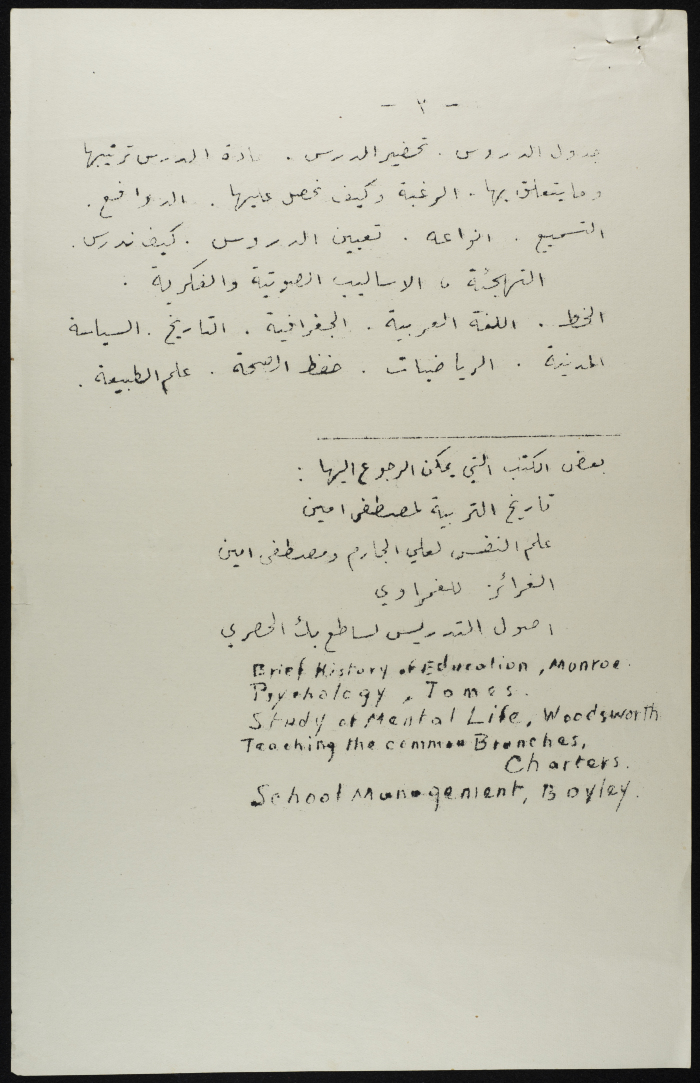 - ٢ -
جدول الدروس . تحضير الدرس . مادة الدرس ترتيبها
وما يتعلق بها . الرغبة وكيف نحصل عليها . الدوافع .
التسميع . انواعه . تعيين الدروس . كيف ندرس .
التهجئة ، الاساليب الصوتية والفكرية .
الخط . اللغة العربية . الجغرافية . التاريخ . السياسة
المدنية . الرياضيات . حفظ الصحة . علم الطبيعة .
بعض الكتب التي يمكن الرجوع اليها :
تاريخ التربية لمصطفى امين
علم النفس لعلي الجارم ومصطفى امين
الغرائز للغمراوي
اصول التدريس لساطع بك الحصري
Brief History of Education, Monroe.
Psychology, Tomes.
Study of Mental Life, Woodsworth
Teaching the common Branches,
Charters.
School Management, Bayley.